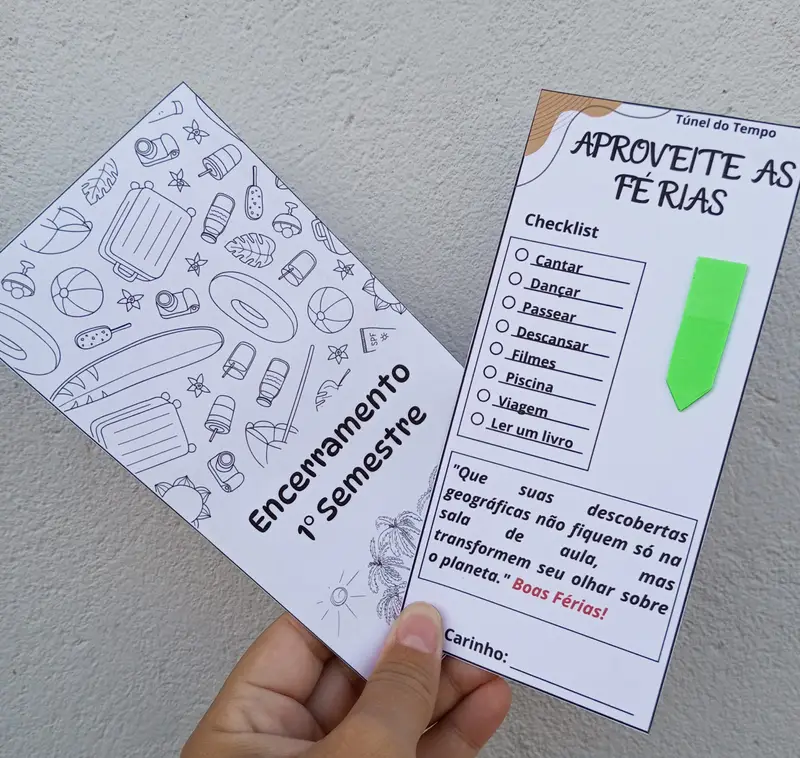 Encerramento
1º Semestre
SPF
Túnel do Tempo
APROVEITE AS
FÉRIAS
Checklist
Cantar
Dançar
Passear
Descansar
Filmes
Piscina
Viagem
Ler um livro
"Que suas descobertas
geográficas não fiquem só na
sala de aula, mas
transformem seu olhar sobre
o planeta." Boas Férias!
Carinho: